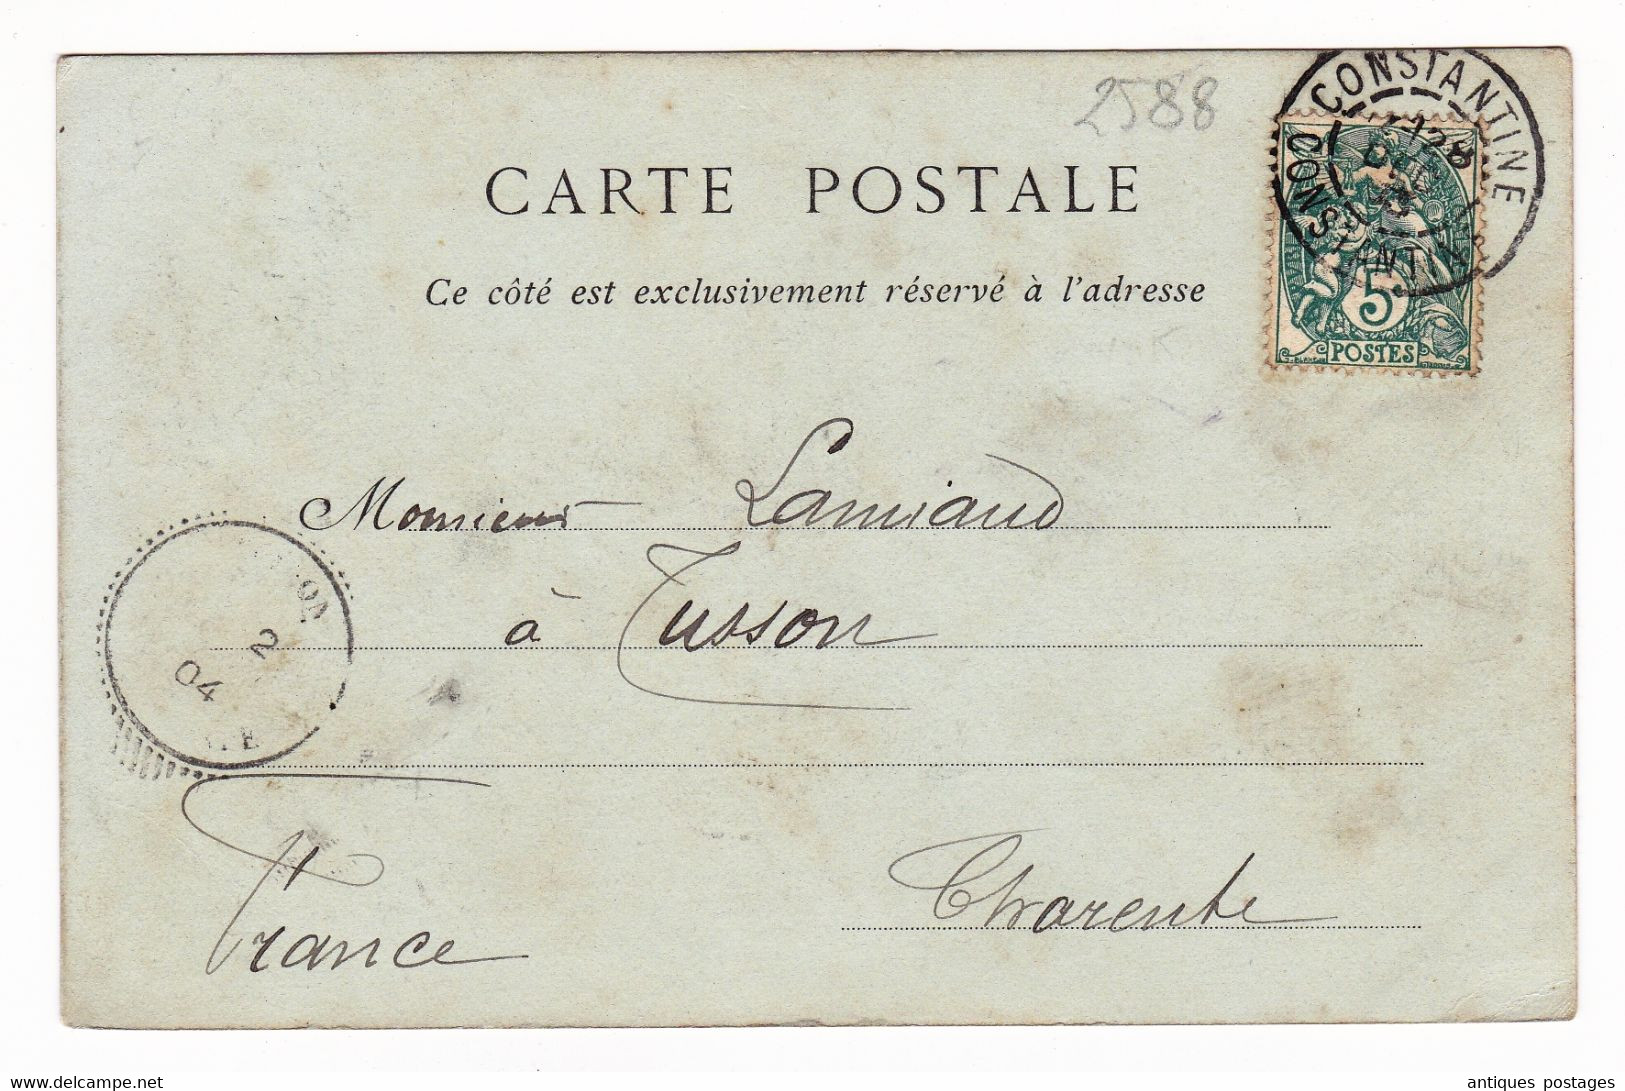 2588
CONSTANTINE
CONSTANTINE
DEC
CARTE POSTALE
Ce côté est exclusivement réservé à l'adresse
5
POSTES
Monsieur Lamiaud
à Tusson
2
04
France
Charente
www.delcampe.net
antiques postages